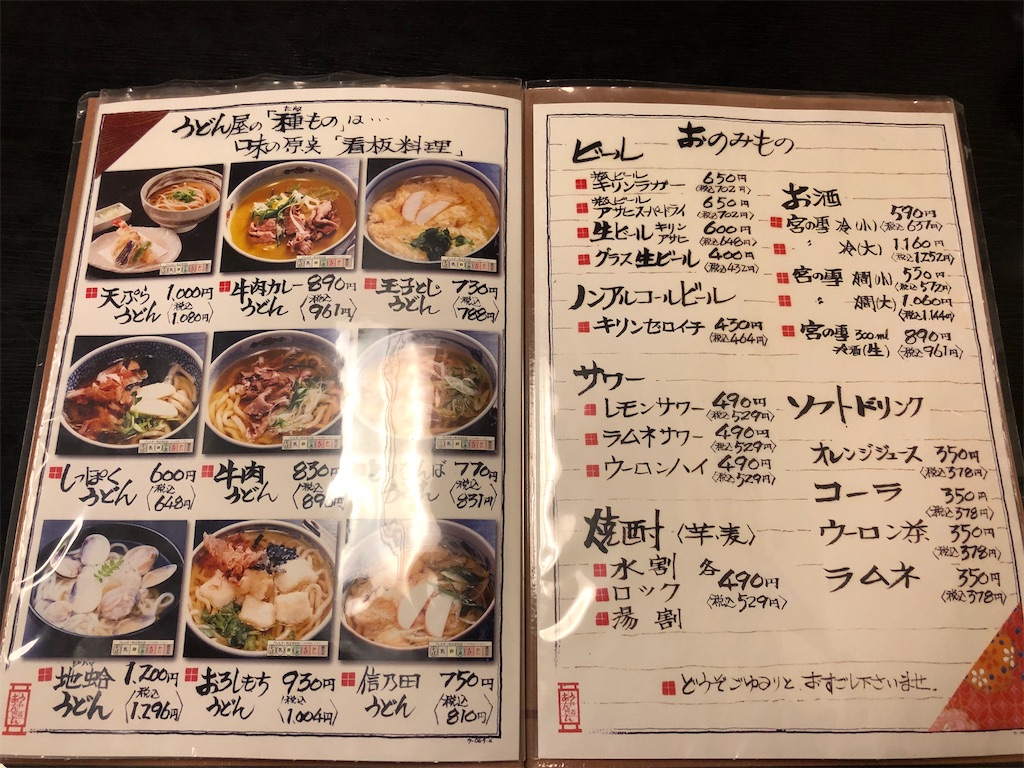 うどん屋の「種もの」は…
たね
口味の原実「看板料理」
天ぷらうどん 1.000円 (税込1.080円)
牛肉カレーうどん 890円 (税込961円)
玉子とじうどん 730円 (税込788円)
しっぽくうどん 600円 (税込648円)
牛肉うどん 830円 (税込896円)
770円 (税込831円)
地蛤うどん 1.200円 (税込1.296円)
おろしもちうどん 930円 (税込1.004円)
信乃田うどん 750円 (税込810円)
おのみもの
ビール
瓶ビール キリンラガー 650円 (税込702円)
瓶ビール アサヒスーパードライ 650円 (税込702円)
生ビール キリン アサヒ 600円 (税込648円)
グラス生ビール 400円 (税込432円)
ノンアルコールビール
キリンゼロイチ 430円 (税込464円)
サワー
レモンサワー 490円 (税込529円)
ラムネサワー 490円 (税込529円)
ウーロンハイ 490円 (税込529円)
焼酎 (芋、麦)
水割
ロック 各490円 (税込529円)
湯割
お酒
宮の雪 冷(小) 590円 (税込637円)
〃 冷(大) 1.160円 (税込1252円)
宮の雪 燗(小) 530円 (税込572円)
〃 燗(大) 1.060円 (税込1.144円)
宮の雪 300ml 冷酒(生) 890円 (税込961円)
ソフトドリンク
オレンジジュース 350円 (税込378円)
コーラ 350円 (税込378円)
ウーロン茶 350円 (税込378円)
ラムネ 350円 (税込378円)
どうぞごゆるりと、おすごし下さいませ.